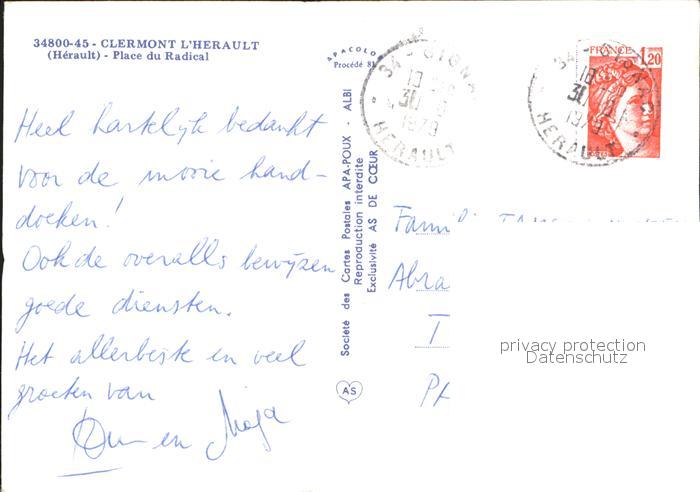 34800-45 - CLERMONT L'HERAULT
(Hérault) - Place du Radical
APACOLOR
Procédé 81
Heel hartelijk bedankt
voor de mooie hand-
doeken!
Ook de overalls bewijzen
goede diensten.
Het allerbeste en veel
groeten van
en
Société des Cartes Postales APA-POUX - ALBI
Reproduction interdite
Exclusivité AS DE CŒUR
AS
34 - GIGNAC
30
1979
HERAULT
34 - GIGNAC
1979
HERAULT
FRANCE 1,20
Famil
Abra
T
privacy protection
Datenschutz